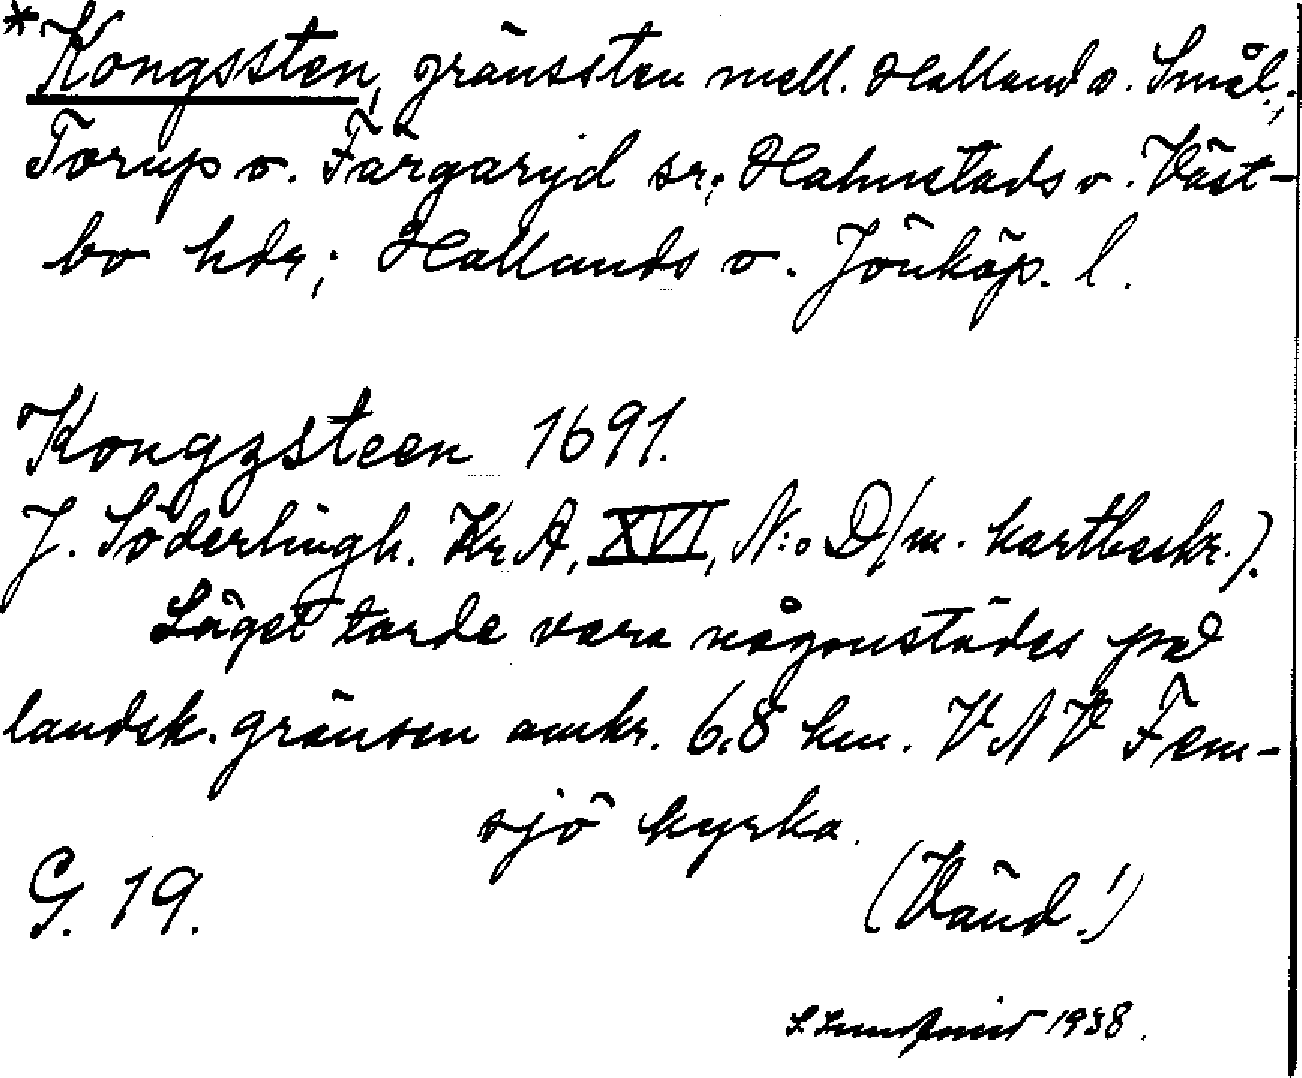 *Kongssten, gränssten mell. Halland o. Smål.;
Torup o. Färgaryd sr; Halmstads o. Väst-
bo hdr; Hallands o. Jönköp. l.
Kongzsteen 1691.
J. Söderlingh. Kr.A, XVI, N:o D/m. kartbeskr.).
Läget torde vara någonstädes på
landsk. gränsen omkr. 6,8 km. VNV Fem-
sjö kyrka.
G. 19.
(Vänd!)
S. Lundquist 1938.